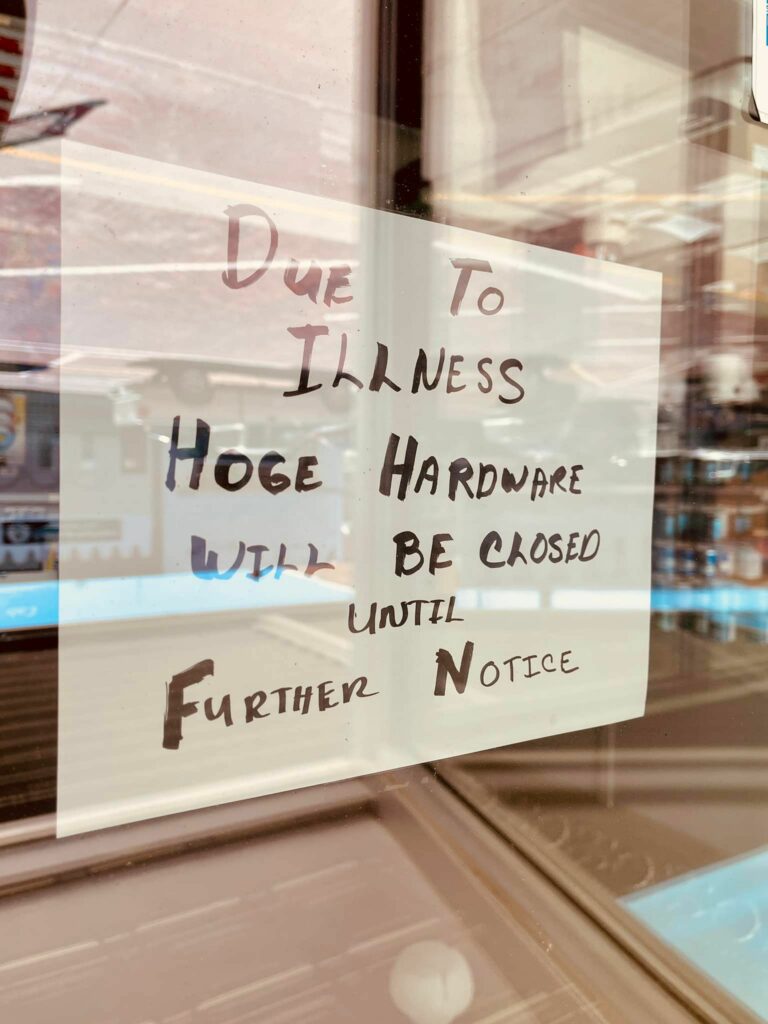 Due To
Illness
Hoge Hardware
will Be Closed
until
Further Notice